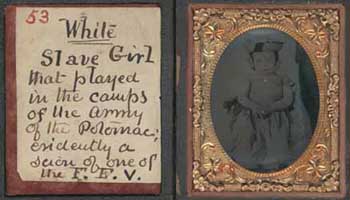 53
White
Slave Girl
that played
in the camps
of the Army
of the Potomac;
evidently a
scion of one of
the F. F. V.